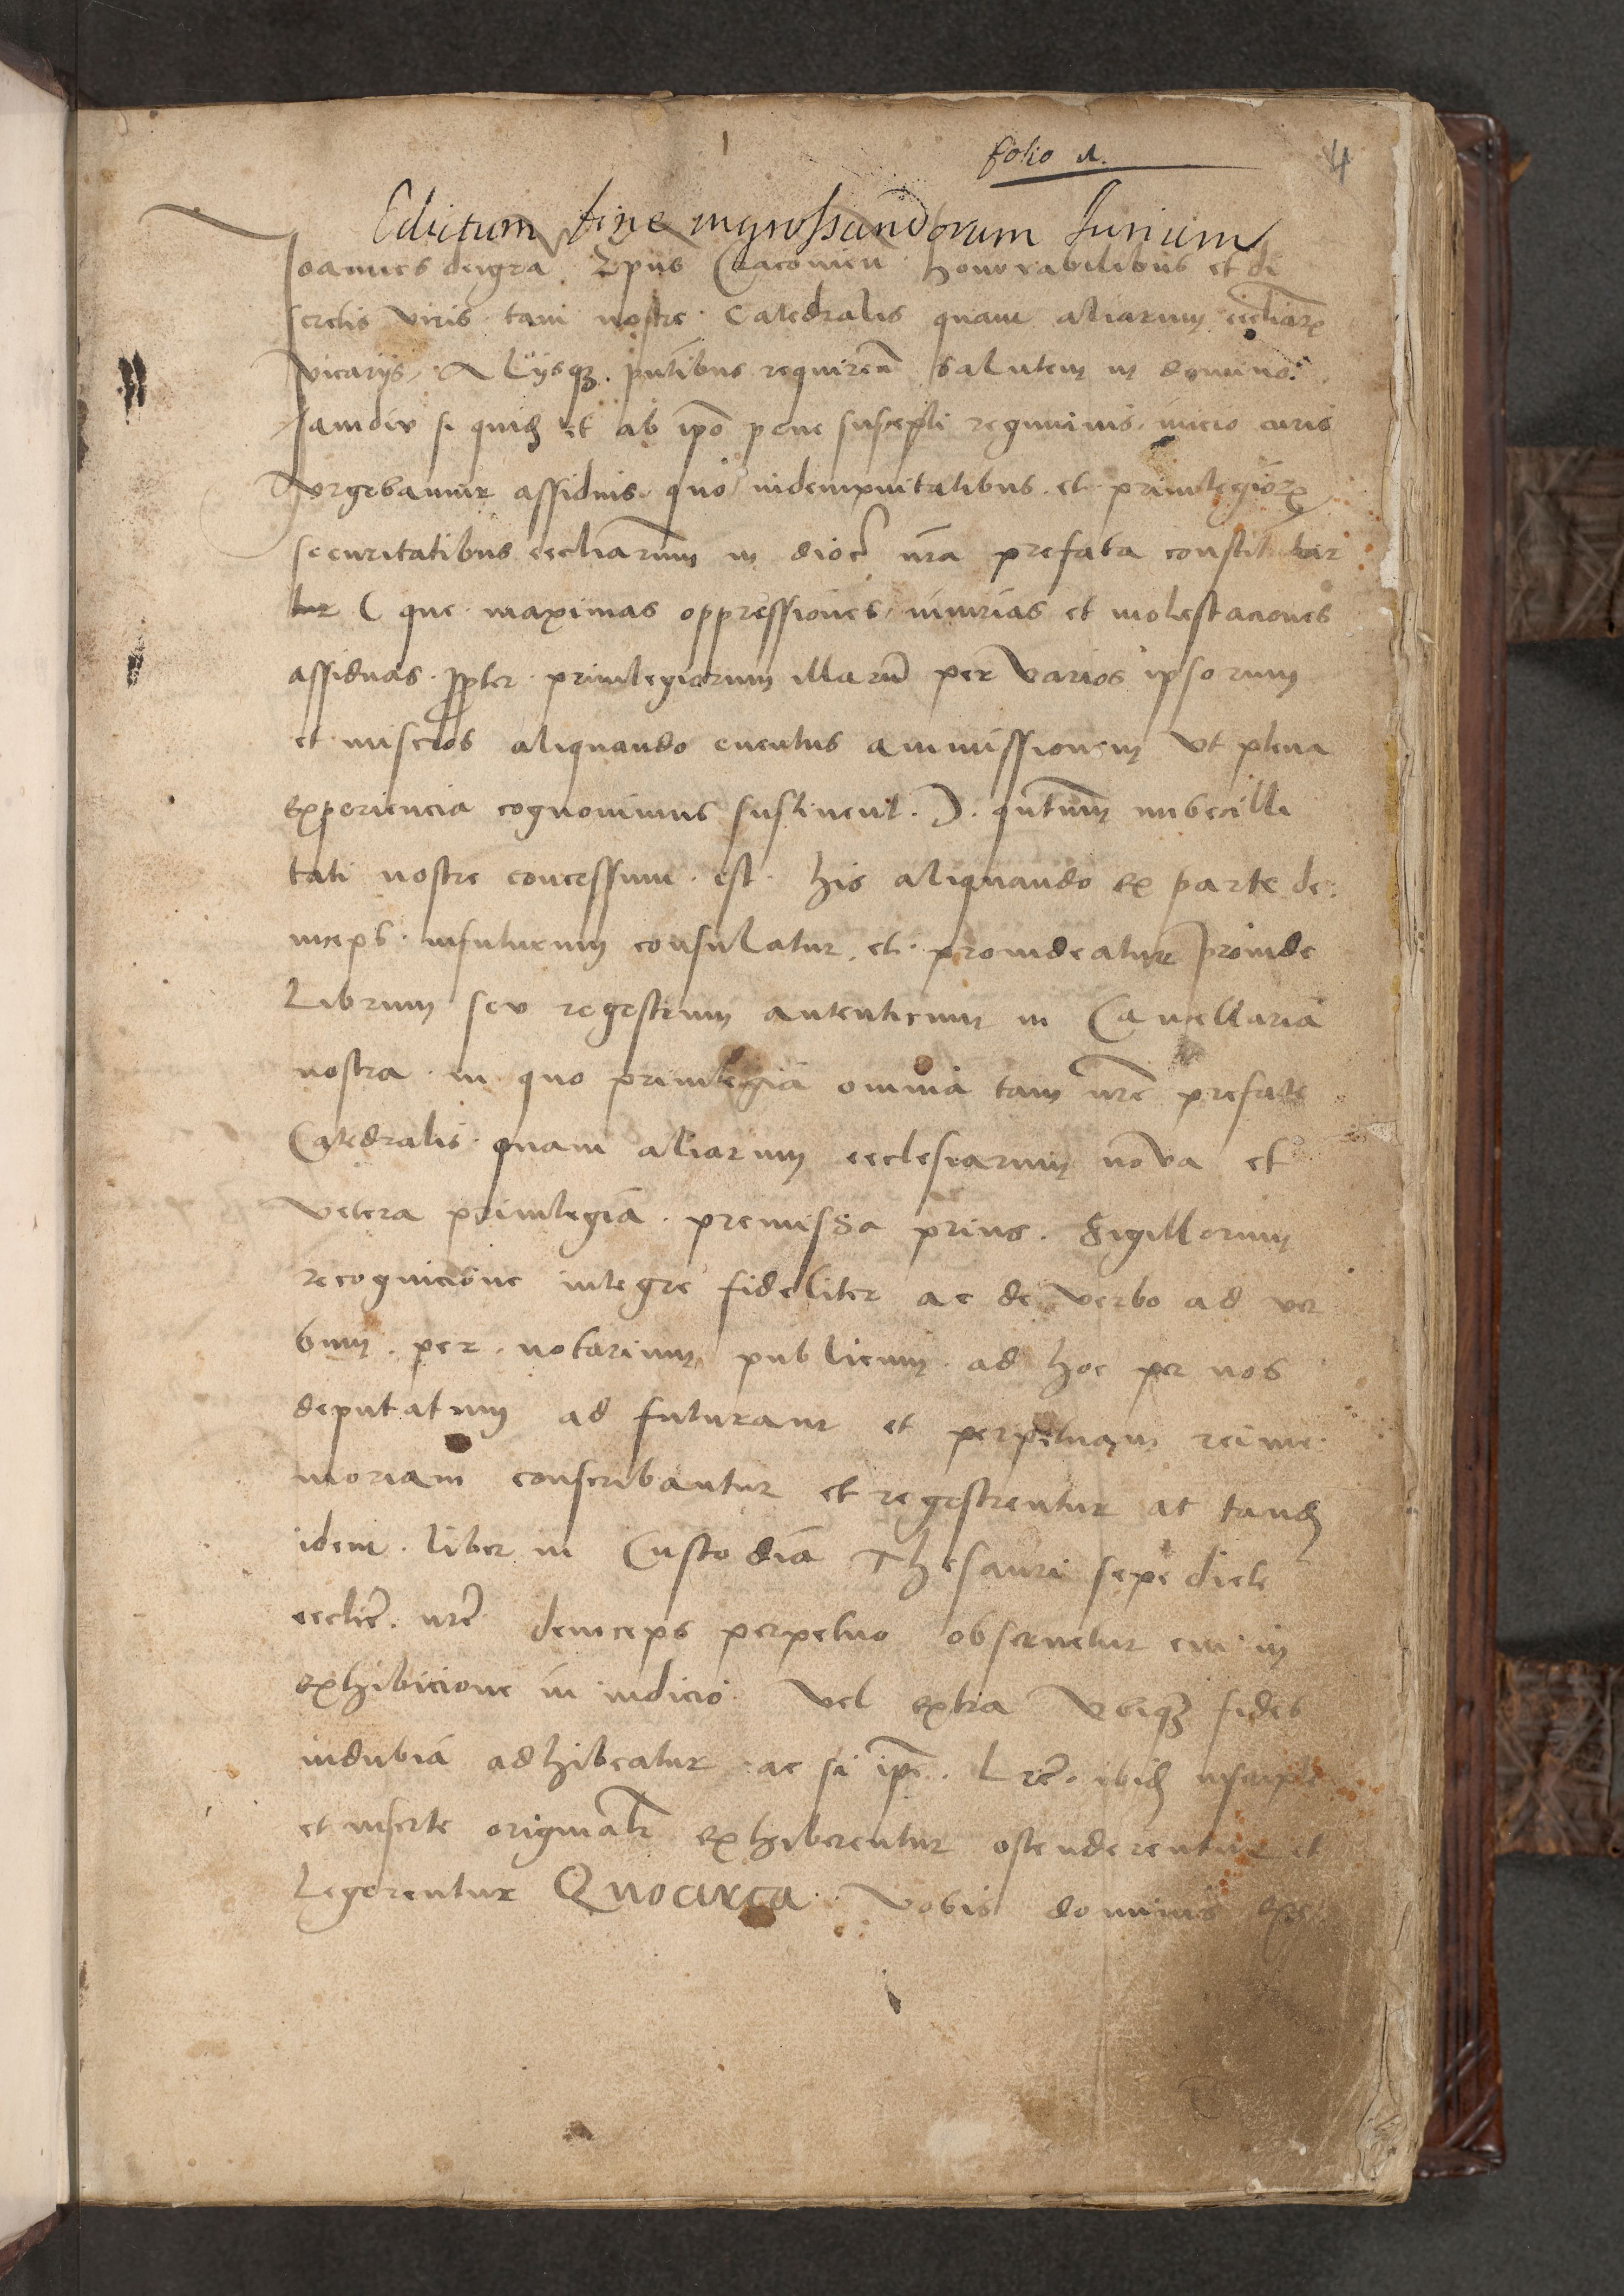 folio 1.
4
Edictum sive ingrossandorum Jurium
Joannes dei gra Epus Cracovien honorabilibus et di
scretis viris tam nostre Catedralis quam aliarum eccliarum
vicariis Aliisq pntibus requiren salutem in domino
Jamdiu siquid et ab ipo pene suscepti regiminis inicio curis
urgebamur assiduis quo indempnitatibus et privilegiorum
securitatibus eccliarum in dioc nra prefata constitutar
( que maximas oppressiones iniurias et molestaciones
assiduas ppter privilegiorum illarum per varios ipsorum
et miseros aliquando eventus ammissionem ut plena
experiencia cognovimus sustinent ) quntum imbecilli
tati nostre concessum est his aliquando ex parte de
inceps in futurum consulatur et provideatur proinde
Librum seu regestrum autenticum in Cancellaria
nostra in quo privilegia omnia tam nre prefate
Catedralis quam aliarum ecclesiarum nova et
vetera privilegia premissa prius sigillorum
recognicione integre fideliter ac de verbo ad ver
bum per notarium publicum ad hoc per nos
deputatum ad futuram et perpetuam rei me
moriam conscribantur et regestrentur ac tandem
idem liber in Custodia Thesauri sepe dicte
ecclie nre deinceps perpetuo observetur cui in
exhibicione in iudicio vel extra ubiq fides
indubia adhibeatur ac si ipe Lre ibid inscripte
et inserte originalr exhiberentur ostenderentur et
Legerentur Quocirca vobis dominis